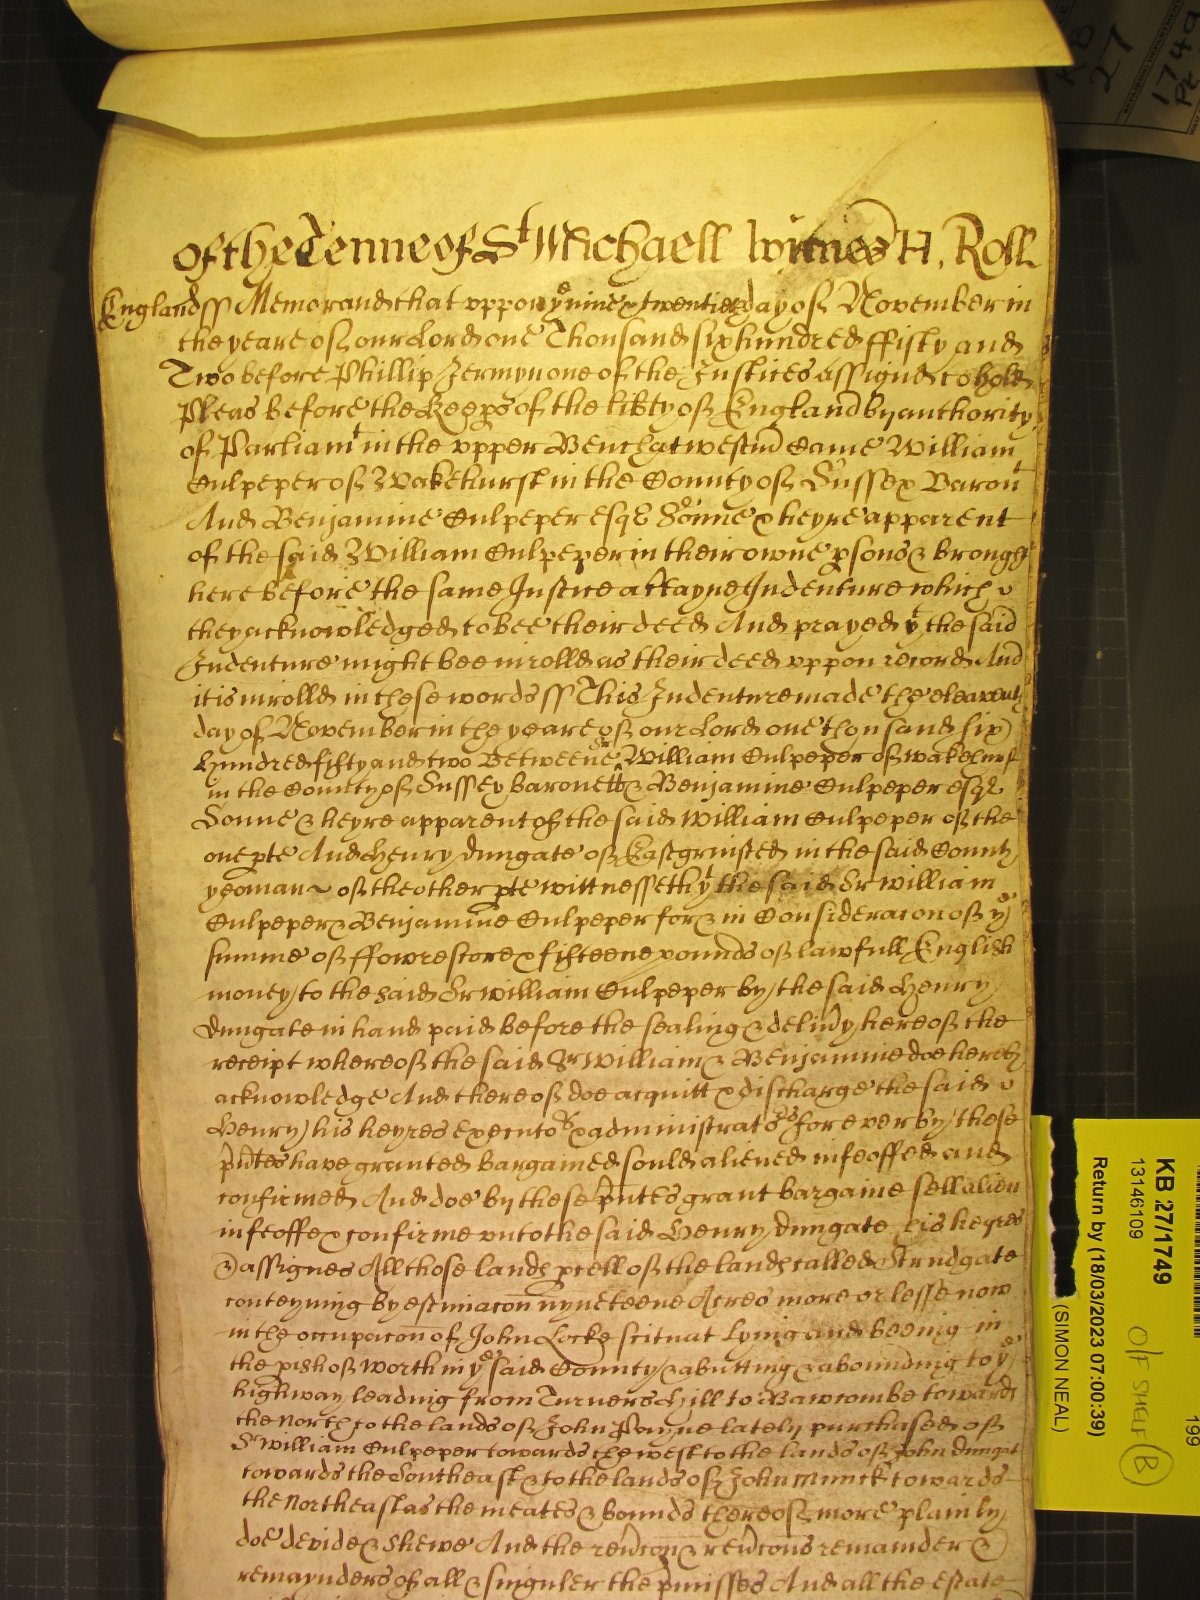 of the Terme of St Michaell Witnes H. Roll
England ss Memorand that vppon ye nine & twentieth day of November in
the yeare of our Lord one Thousand six hundred ffifty and
Two before Phillip Jermyn one of the Justices assigned to hold
Pleas before the Keepers of the libty of England by authority
of Parliamt in the vpper Bench at westm Came William
Culpeper of Wakehurst in the County of Sussex Baront
And Benjamine Culpeper esqr Sonne & heyre apparent
of the said William Culpeper in their owne psons & brought
here before the same Justice a Indenture which
they acknowledged to bee their deed And prayed yt the said
Indenture might bee inrolld as their deed vppon record And
it is inrolld in these words ss This Indenture made the eleaventh
day of November in the yeare of our Lord one thousand six
Hundred fifty and two Betweene Sr William Culpeper of wakehurst
in the County of Sussex baronett & Benjamine Culpeper esqr
Sonne & heyre apparent of the said William Culpeper of the
one pte And Henry Dungate of Eastgrinsted in the said County
yeoman of the other pte wittnesseth yt the said Sr William
Culpeper & Benjamine Culpeper for & in Consideracon of ye
summe of ffowrescore & fifteene pounds of lawfull English
money to the said Sr William Culpeper by the said Henry
Dungate in hand paid before the sealing & delivy hereof the
receipt whereof the said Sr William & Benjamine doe hereby
acknowledge And thereof doe acquitt & discharge the said
Henry his heyres Executors & administrators for ever by these
pntes have granted bargained sould aliened infeoffed and
confirmed And doe by these pntes grant bargaine sell alien
infeoffe & confirme vnto the said Henry Dungate his heyres
& assignes All those lands pcell of the lands called Strudgate
conteyning by estimacon nyneteene Acres more or lesse now
in the occupacon of John Locke scituat lying and beeing in
the pish of worth in ye said County & abutting & abounding to ye
highway leading from Turners Hill to Bawcombe towards
the North to the lands of John Payne lately purchased of
Sr William Culpeper towards the west to the lands of John Dungat
towards the Southeast & to the lands of John towards
the Northeast as the meates & bounds thereof more plainly
doe devide & shewe And the revcon & revcons remainder &
remaynders of all & singuler the pmisses And all the estate
KB
27
1749
Pt
KB 27/1749
13146109
Return by (18/03/2023 07:00:39)
(SIMON NEAL)
O/F SHELF B
199